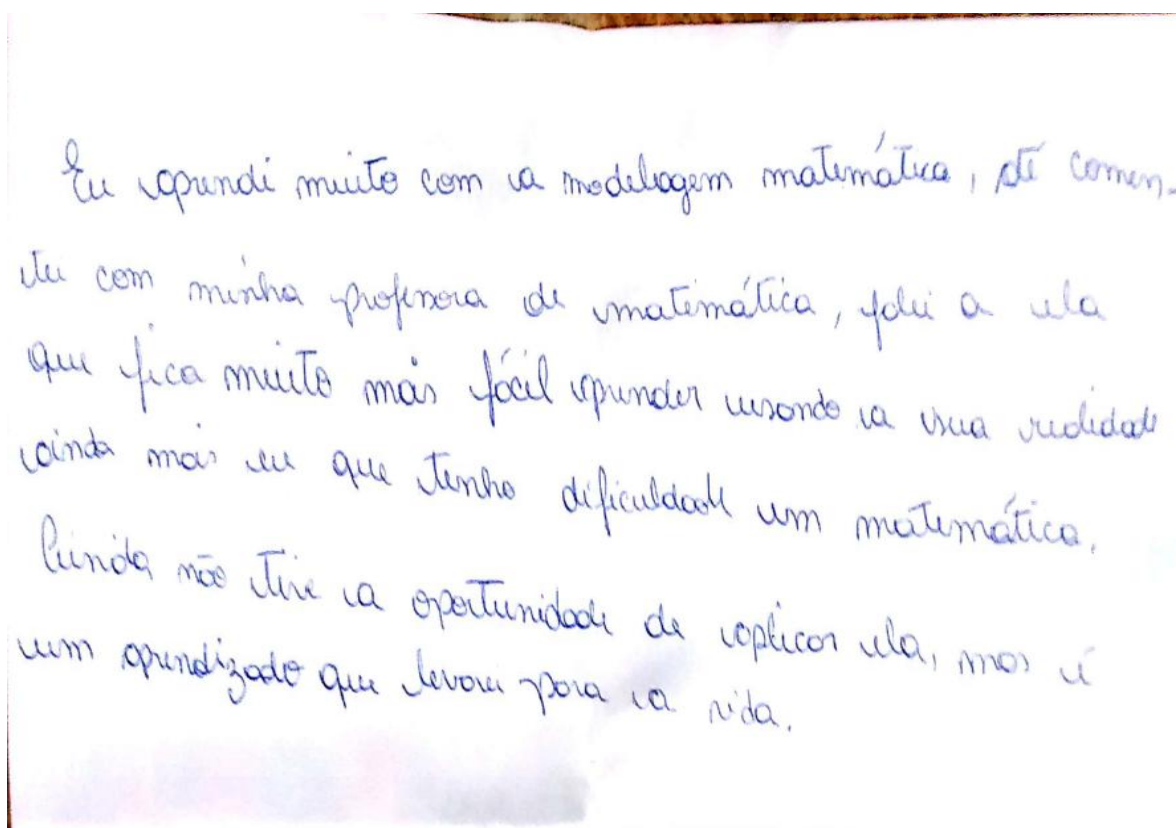 Eu aprendi muito com a modelagem matemática, até comen-
tei com minha professora de matemática, falei a ela
que fica muito mais fácil aprender usando a sua realidade
ainda mais eu que tenho dificuldade em matemática.
Ainda não tive a oportunidade de aplicar ela, mas é
um aprendizado que levarei para a vida.